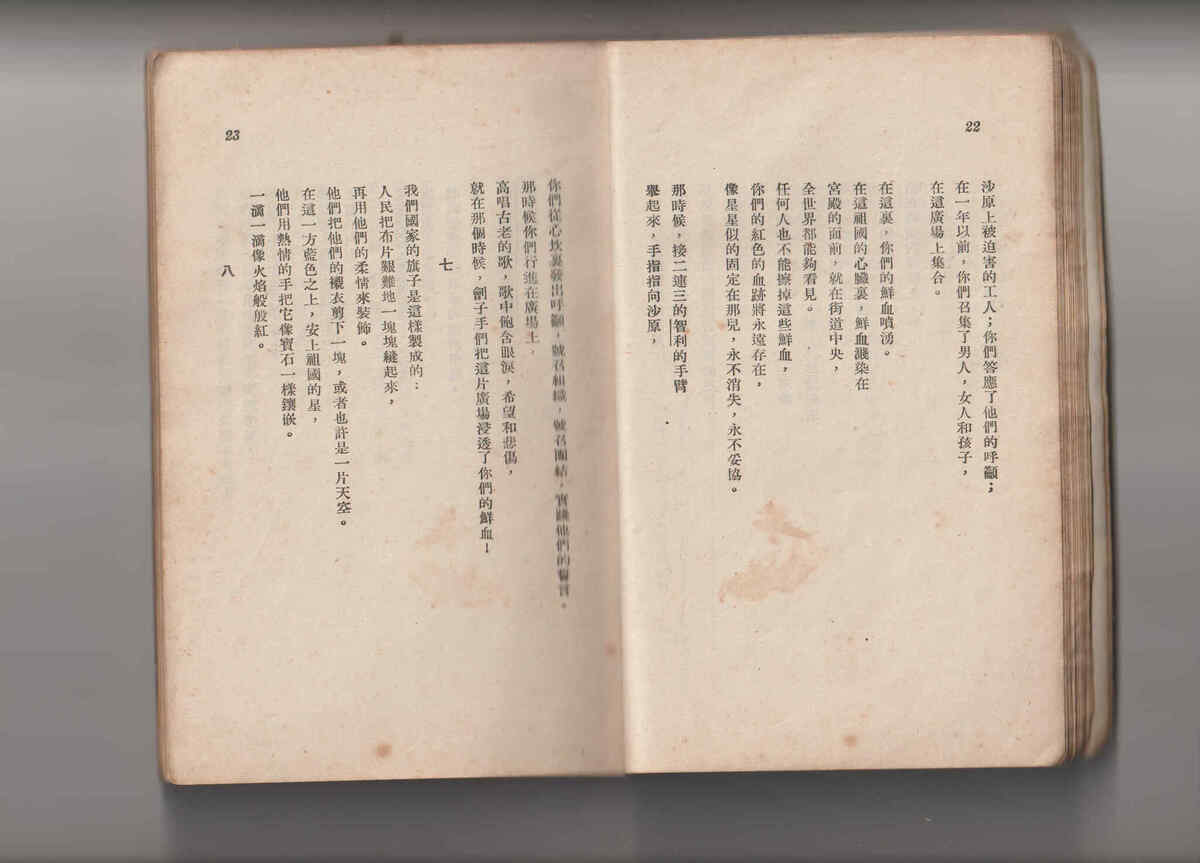 22
沙原上被迫害的工人；你們答應了他們的呼籲；
在一年以前，你們召集了男人，女人和孩子，
在這廣場上集合。
在這裏，你們的鮮血噴湧。
在這祖國的心臟裏，鮮血濺染在
宮殿的面前，就在街道中央，
全世界都能夠看見。
任何人也不能擦掉這些鮮血，
你們的紅色的血跡將永遠存在，
像星星似的固定在那兒，永不消失，永不妥協。
那時候，接二連三的智利的手臂
舉起來，手指指向沙原，
23
你們從心坎裏發出呼籲，號召組織，號召團結，實踐他們的誓言。
那時候你們行進在廣場上，
高唱古老的歌，歌中飽含眼淚，希望和悲傷，
就在那個時候，劊子手們把這片廣場浸透了你們的鮮血！
七
我們國家的旗子是這樣製成的：
人民把布片艱難地一塊塊縫起來，
再用他們的柔情來裝飾。
他們把他們的襯衣剪下一塊，或者也許是一片天空。
在這一方藍色之上，安上祖國的星，
他們用熱情的手把它像寶石一樣鑲嵌。
一滴一滴像火焰般殷紅。
八